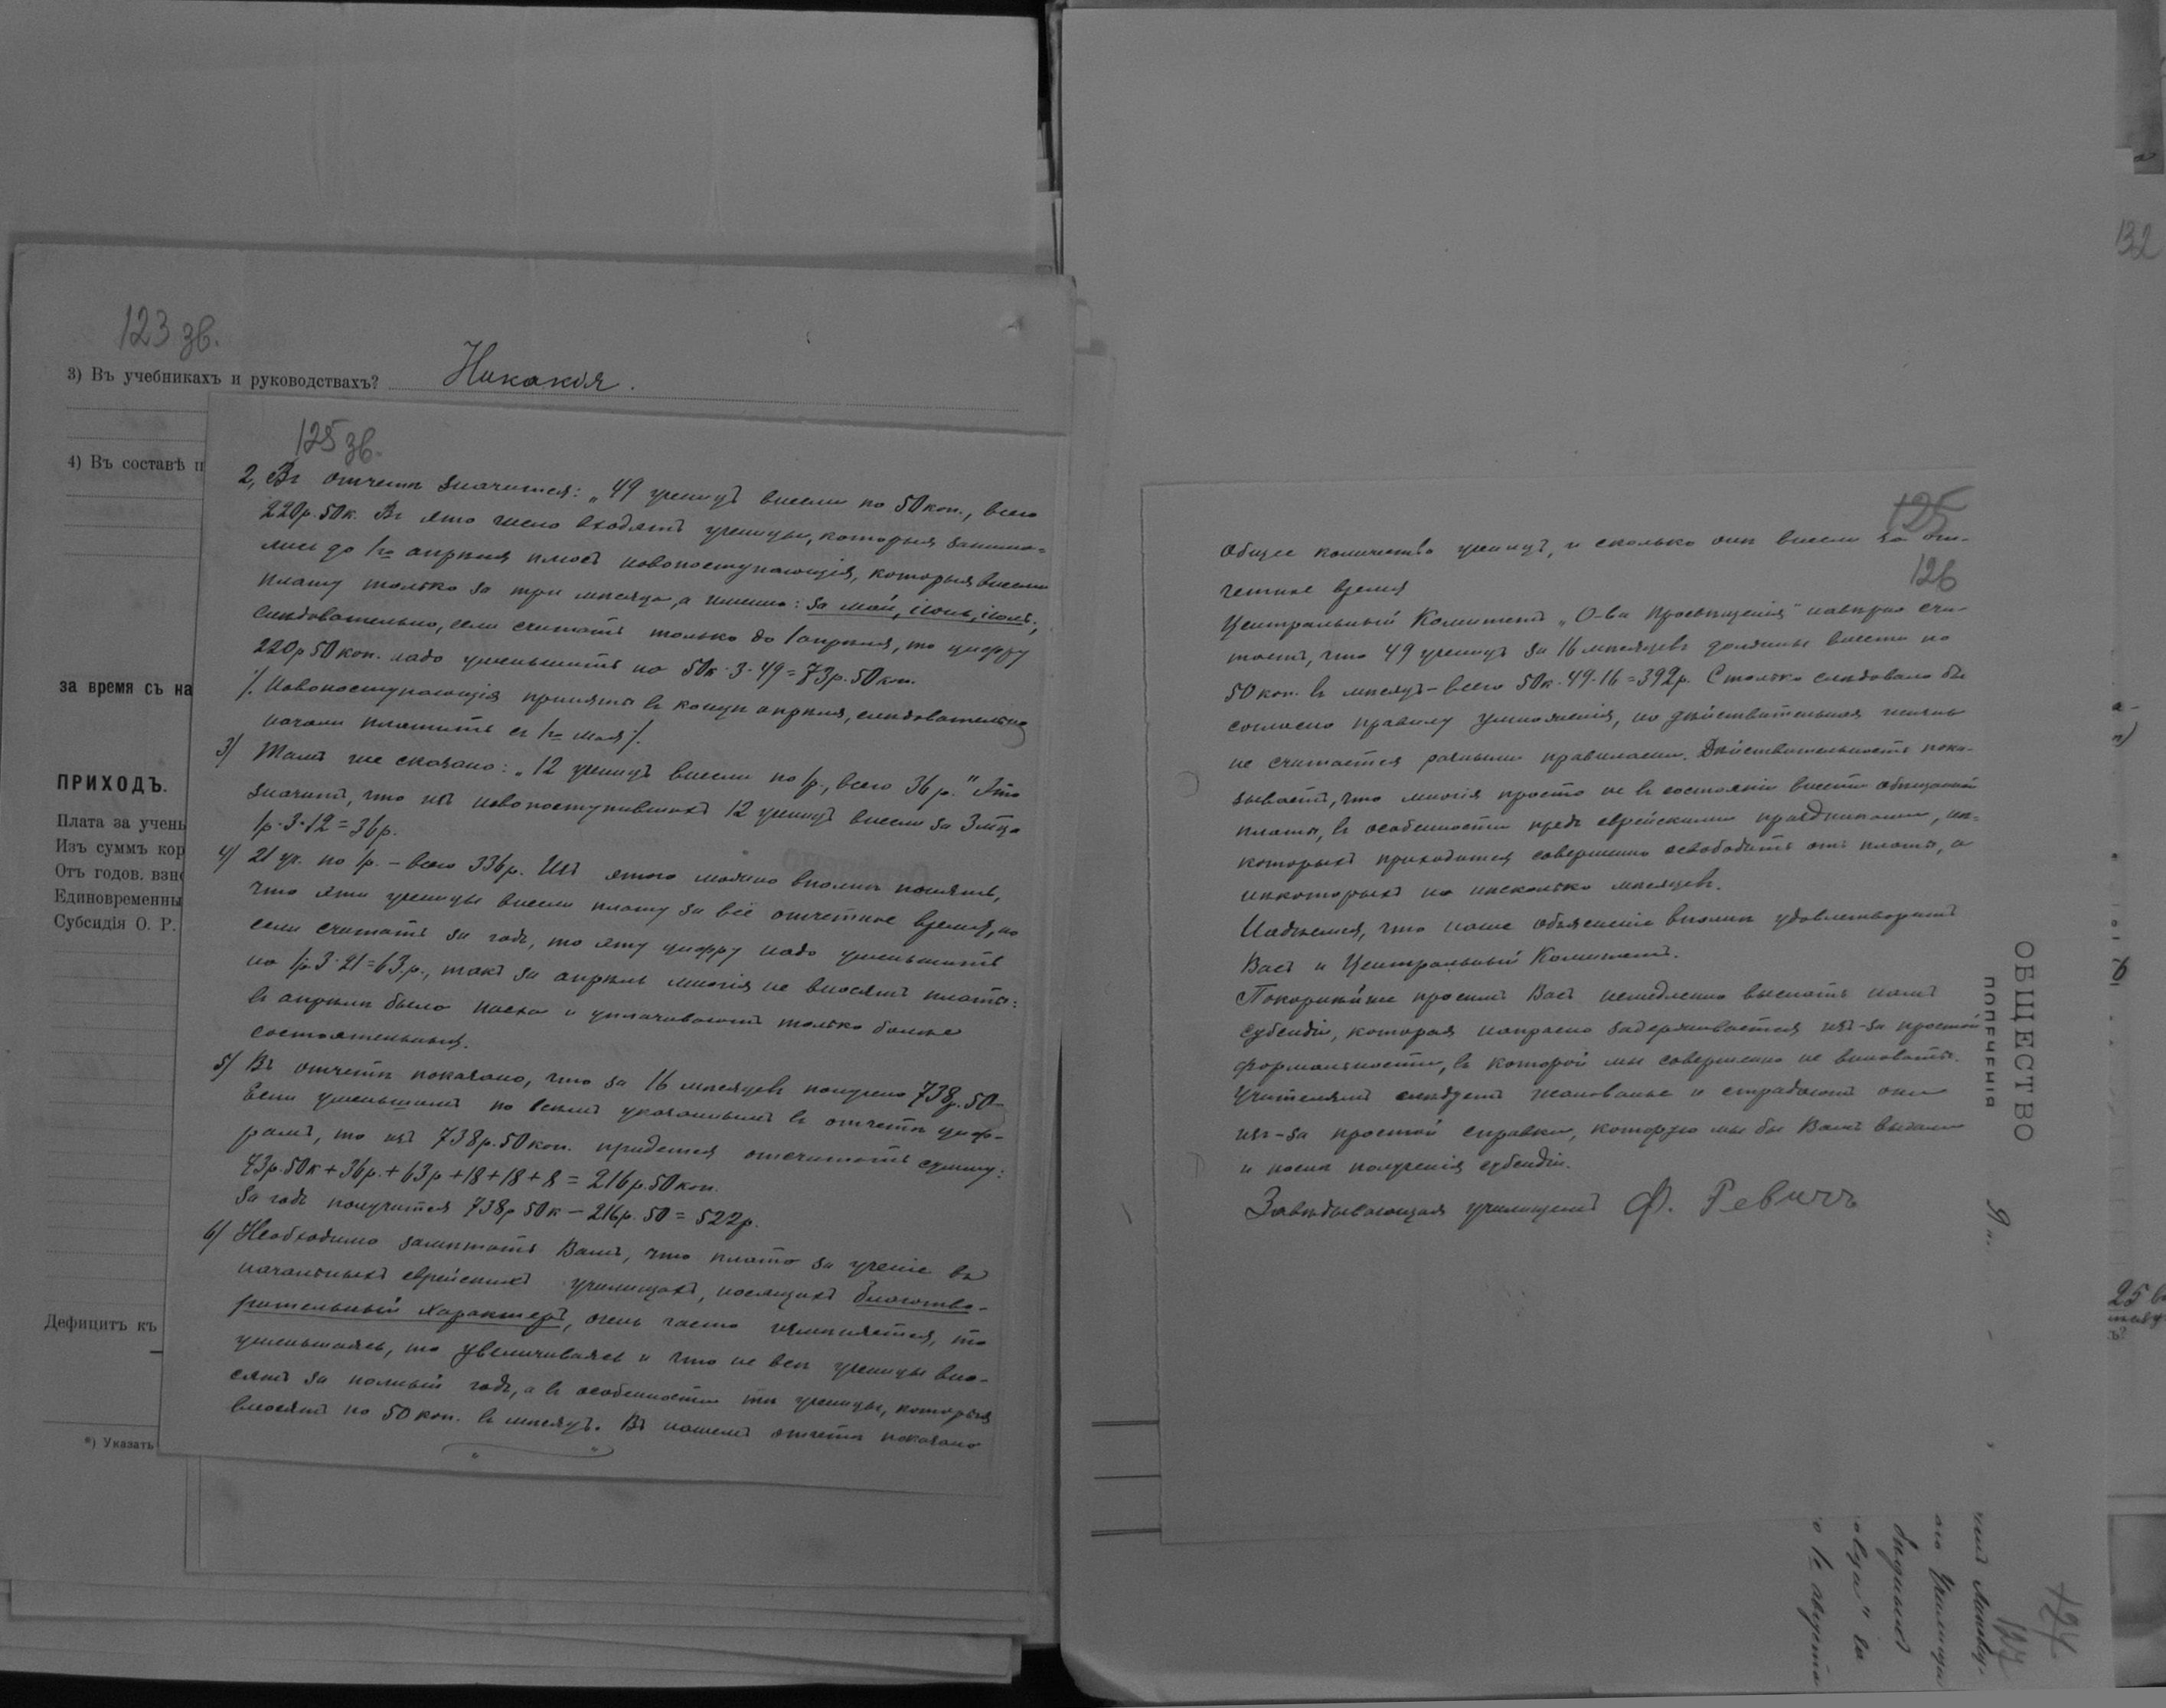 123 зв.
3) Въ учебникахъ и руководствахъ? Никакія.
4) Въ составѣ п
за время съ на
ПРИХОДЪ.
Плата за учень
Изъ суммъ кор
Отъ годов. взно
Единовременны
Субсидія О. Р.
Дефицитъ къ
*) Указать
125 зв.
2, Въ отчетѣ значится: „49 ученицъ внесли по 50 коп., всего
220р. 50к. Въ это число входятъ ученицы, которыя занима-
лись до 1го апрѣля плюсъ новопоступающія, которыя внесли
плату только за три мѣсяца, а именно: за май, іюнь, іюль;
слѣдовательно, если считать только до 1 апрѣля, то цифру
220р 50 коп. надо уменьшить на 50к · 3 · 49 = 73р. 50 коп.
/. Новопоступающія приняты въ концѣ апрѣля, слѣдовательно
начали платить съ 1го мая /.
3) Тамъ же сказано: „12 ученицъ внесли по 1р., всего 36 р." Это
значитъ, что изъ новопоступившихъ 12 ученицъ внесли за 3 м-ца
1р · 3 · 12 = 36р.
4) 21 уч. по 1р. – всего 336р. Изъ этого можно вполнѣ понять,
что эти ученицы внесли плату за всё отчетное время, но
если считать за годъ, то эту цифру надо уменьшить
на 1р 3 · 21 = 63.р., такъ за апрѣль многія не вносятъ платы:
въ апрѣлѣ была пасха и уплачиваютъ только болѣе
состоятельныя.
5) Въ отчетѣ показано, что за 16 мѣсяцевъ получено 738р. 50
Если уменьшимъ по всемъ указаннымъ въ отчетѣ циф-
рамъ, то изъ 738р. 50 коп. придется отсчитать сумму:
73р. 50к + 36р. + 63р + 18 + 18 + 8 = 216р. 50 коп.
За годъ получится 738р 50к – 216р. 50 = 522р.
6) Необходимо замѣтить Вамъ, что плата за ученіе въ
начальныхъ еврейскихъ училищахъ, носящихъ благотво-
рительный характеръ, очень часто измѣняется, то
уменьшаясь, то увеличиваясь и что не всѣ ученицы вно-
сятъ за полный годъ, а въ особенности тѣ ученицы, которыя
вносятъ по 50 коп. въ мѣсяцъ. Въ нашемъ отчетѣ показано
125
общее количество ученицъ, и сколько онѣ внесли за от-
126
четное время
Центральный Комитетъ „О-ва Просвѣщенія" навѣрно счи-
таетъ, что 49 ученицъ за 16 мѣсяцевъ должны внести по
50 коп. въ мѣсяцъ – всего 50к · 49 · 16 = 392р. Столько слѣдовало бы
согласно правилу умноженія, но дѣйствительная жизнь
не считается разными правилами. Дѣйствительность пока-
зываетъ, что многія просто не въ состояніи внести обѣщанной
платы, въ особенности предъ еврейскими праздниками, нѣ-
которыхъ приходится совершенно освободить отъ платы, а
нѣкоторыхъ на нѣсколько мѣсяцевъ.
Надѣемся, что наше объясненіе вполнѣ удовлетворитъ
Васъ и Центральный Комитетъ.
Покорнѣйше просимъ Васъ немедленно выслать намъ
субсидію, которая напрасно задерживается изъ-за простой
формальности, въ которой мы совершенно не виноваты.
Учителямъ слѣдуетъ жалованье и страдаютъ они
изъ-за простой справки, которую мы бы Вамъ выдали
и послѣ полученія субсидіи.
Завѣдывающая училищемъ Ф. Ревичъ
ОБЩЕСТВО
ПОПЕЧЕНІЯ
127
132